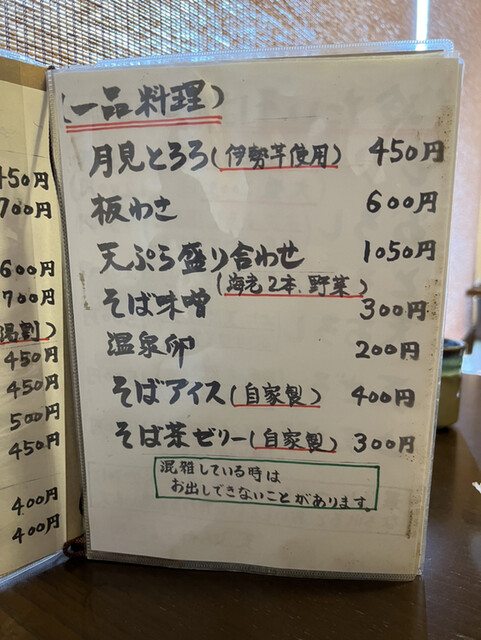 450円
700円
600円
700円
湯割)
450円
450円
500円
450円
400円
400円
(一品料理)
月見とろろ(伊勢芋使用) 450円
板わさ 600円
天ぷら盛り合わせ 1050円
(海老2本、野菜)
そば味噌 300円
温泉卵 200円
そばアイス(自家製) 400円
そば茶ゼリー(自家製) 300円
混雑している時は
お出しできないことがあります。